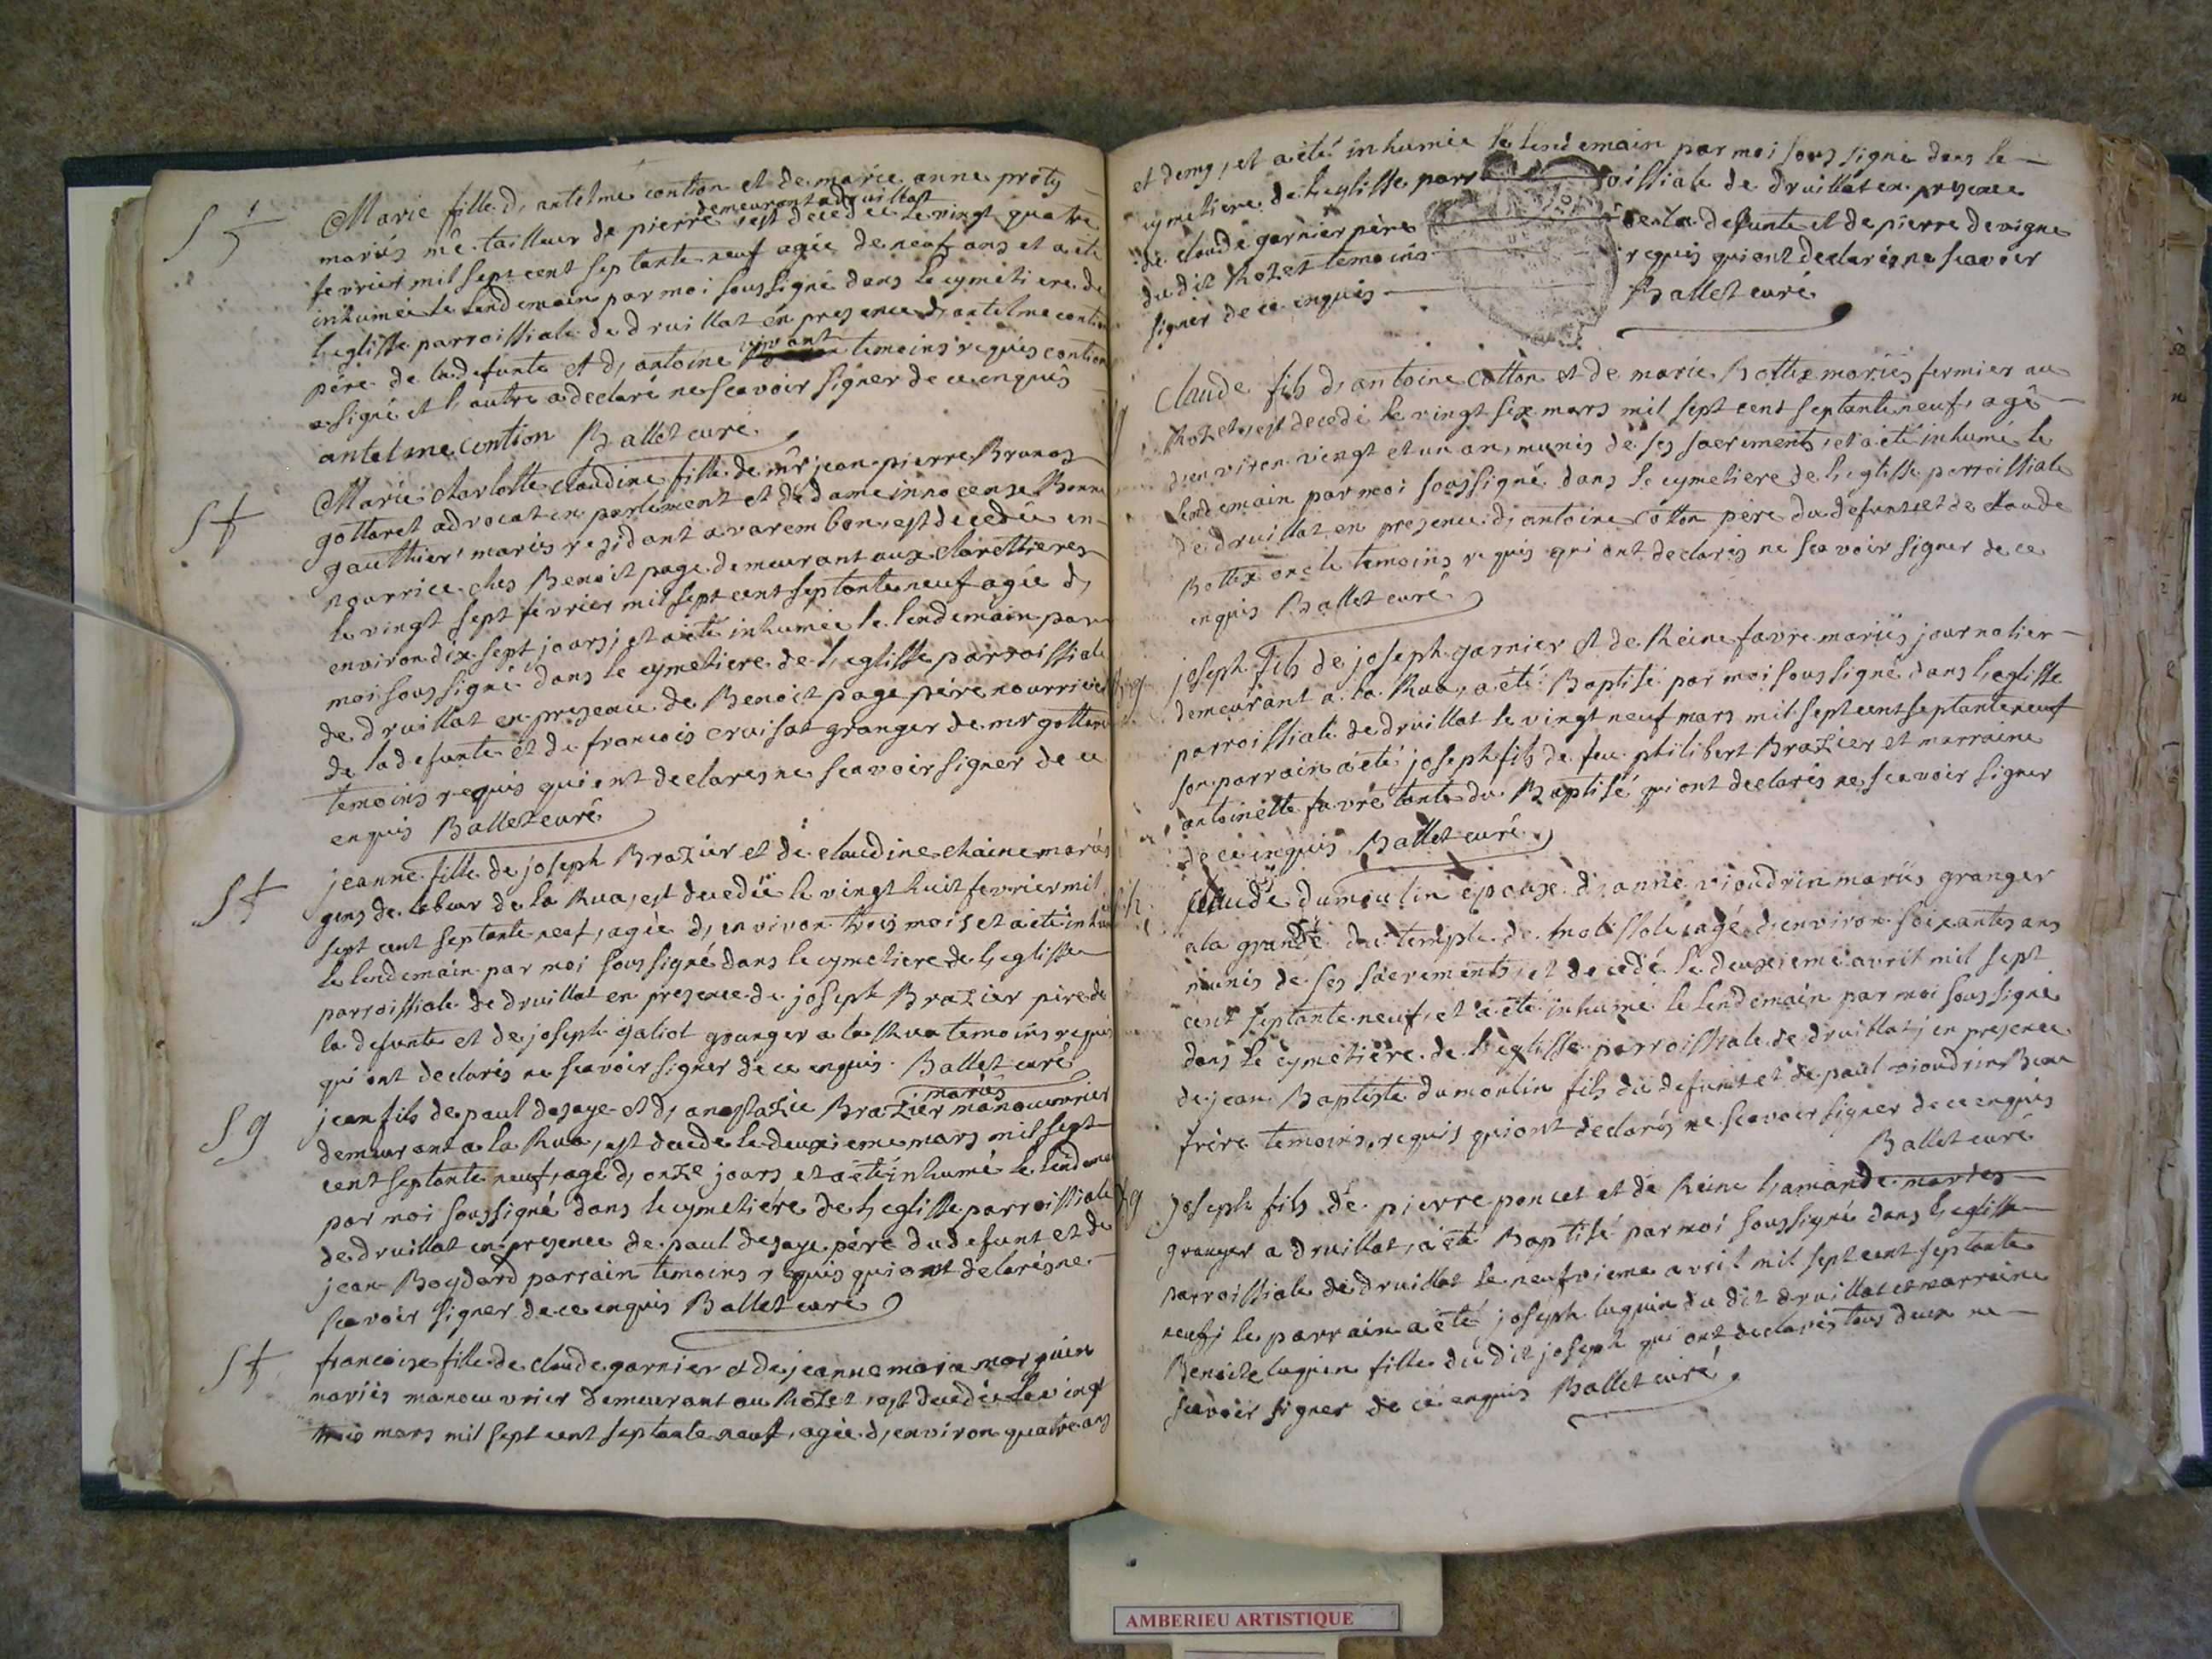 S f
Marie fille d, antelme contion et de marie anne proty
demeurant a druillat
mariés me tailleur de pierre, est decedée le vingt quatre
fevrier mil sept cent septante neuf agée de neuf ans et a été
inhumée le lendemain par moi soussigné dans le cymetiere de
l, eglisse parroissiale de druillat en presence d, antelme contion
père de la defunte et d, antoine vivant temoins requis contion
a signé et l, autre a declaré ne scavoir signer de ce enquis
antelme contion Ballet curé
S f
Marie charlotte claudine fille de mr jean pierre Brunos
gottaret advocat en parlement et de dame innocense Bonne
gauthier mariés residant a varembon, est decedée en
nourrice ches Benoit page demeurant aux clarettieres
le vingt sept fevrier mil sept cent septante neuf agée d,
environ dix sept jours, et a été inhumée le lendemain par
moi soussigné dans le cymetiere de l, eglisse parroissiale
de druillat en presence de Benoit page père nourricier
de la defunte et de francois cruisat granger de mr gottaret
temoins requis qui ont declarés ne scavoir signer de ce
enquis Ballet curé
S f
jeanne fille de joseph Brazier et de claudine chaine mariés
gens de labeur de la Rua, est decedée le vingt huit fevrier mil
sept cent septante neuf, agée d, environ trois mois et a été inhumée
le lendemain par moi soussigné dans le cymetiere de l, eglisse
parroissiale de druillat en presence de joseph Brazier père de
la defunte et de joseph galiot granger a la Rua temoins requis
qui ont declarés ne scavoir signer de ce enquis. Ballet curé
S g
mariés
jean fils de paul desaye et d, anastazie Brazier manouvrier
demeurant a la Rua, est decedé le deuxieme mars mil sept
cent septante neuf, agé d, onze jours et a été inhumé le lendemain
par moi soussigné dans le cymetière de l, eglisse parroissiale
de druillat en presence de paul desaye père du defunt et de
jean Boydard parrain temoins requis qui ont declarés ne
scavoir signer de ce enquis Ballet curé
S f
francoise fille de claude garnier et de jeanne maria
mariés manouvrier demeurant au Rozet, est decedée le vingt
trois mars mil sept cent septante neuf, agée d, environ quatre ans
et demy, et a été inhumée le lendemain par moi soussigné dans le
cymetiere de l, eglisse parroissiale de druillat en presence
de claude garnier père de la defunte et de pierre devigne
du dit Rozet temoins requis qui ont declarés ne scavoir
signer de ce enquis Ballet curé
claude fils d, antoine Cotton et de marie Bottex mariés fermier au
Rozet, est decedé le vingt six mars mil sept cent septante neuf, agé
d, environ vingt et un an, munis de ses sacrements, et a été inhumé le
lendemain par moi soussigné dans le cymetiere de l, eglisse parroissiale
de druillat en presence d, antoine Cotton père du defunt et de claude
Bottex oncle temoins requis qui ont declarés ne scavoir signer de ce
enquis Ballet curé
joseph fils de joseph garnier et de Reine favre mariés journalier
demeurant a la Rua, a été Baptisé par moi soussigné dans l, eglisse
parroissiale de druillat le vingt neuf mars mil sept cent septante neuf
son parrain a été joseph fils de feu philibert Brazier et marraine
antoinette favre tante du Baptisé qui ont declarés ne scavoir signer
de ce enquis Ballet curé
claude dumoulin epoux d, anne vioudrin mariés granger
a la grande du temple de agé d, environ soixantes ans
munis de ses sacrements, et decedé le deuxieme avril mil sept
cent septante neuf, et a été inhumé le lendemain par moi soussigné
dans le cymetière de l, eglisse parroissiale de druillat, en presence
de jean Baptiste dumoulin fils du defunt et de paul vioudrin Beau
frère temoins requis qui ont declarés ne scavoir signer de ce enquis
Ballet curé
joseph fils de pierre poncet et de Reine l, amande mariés
granger a druillat, a été Baptisé par moi soussigné dans l, eglisse
parroissiale de druillat le neufvieme avril mil sept cent septante
neuf, le parrain a été joseph luquin du dit druillat et marraine
Benoite luquin fille du dit joseph qui ont declarés tous deux ne
scavoir signer de ce enquis Ballet curé
AMBERIEU ARTISTIQUE